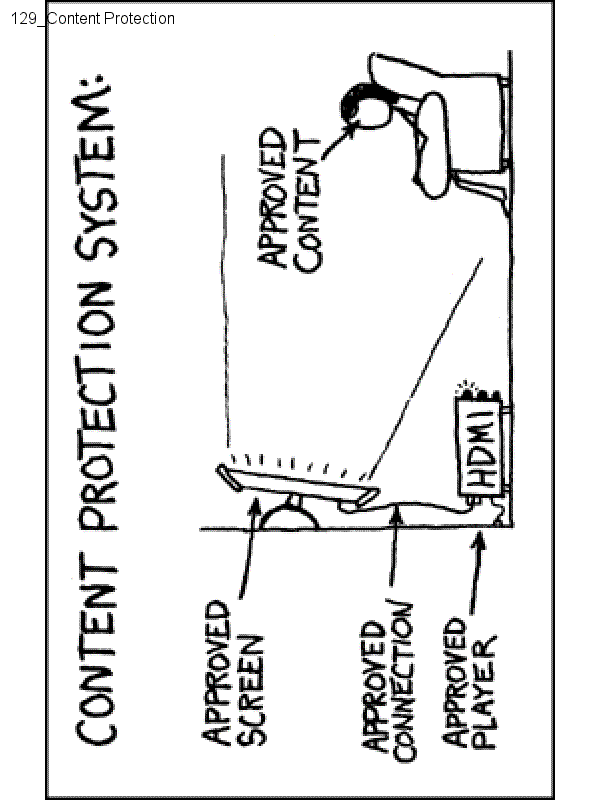 129_Content Protection
CONTENT PROTECTION SYSTEM:
APPROVED
SCREEN
APPROVED
CONTENT
APPROVED
CONNECTION
APPROVED
PLAYER
HDMI